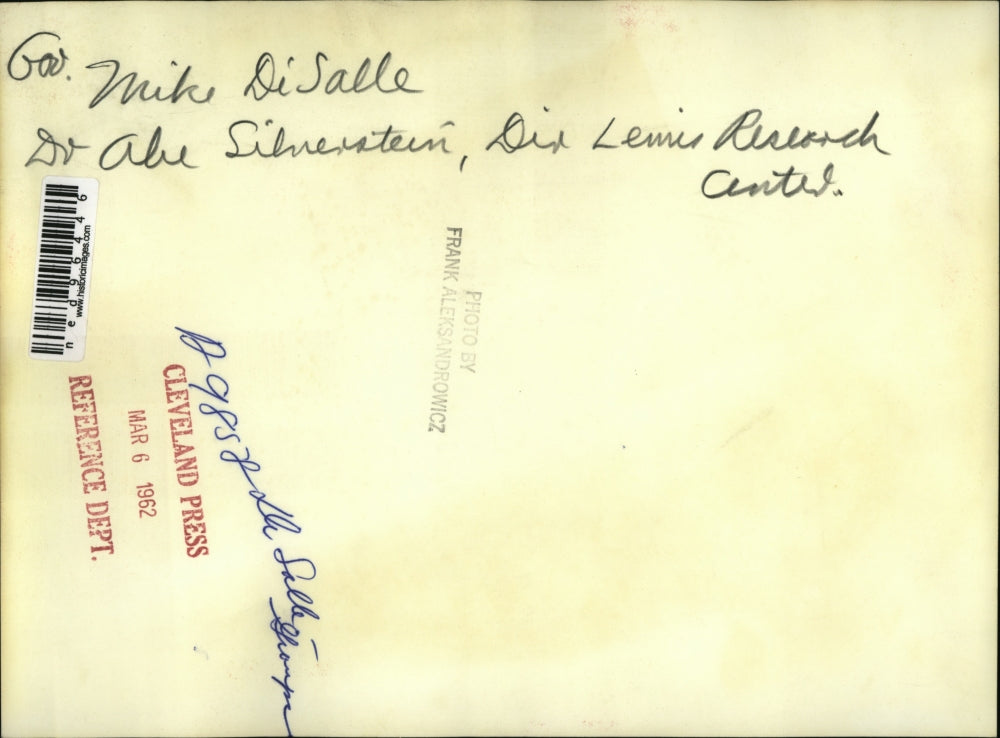 Gov. Mike DiSalle
Dr Abe Silverstein, Dir Lewis Research
Center.
ned96446
www.historicimages.com
PHOTO BY
FRANK ALEKSANDROWICZ
CLEVELAND PRESS
MAR 6 1962
REFERENCE DEPT.
Salle -
Groups